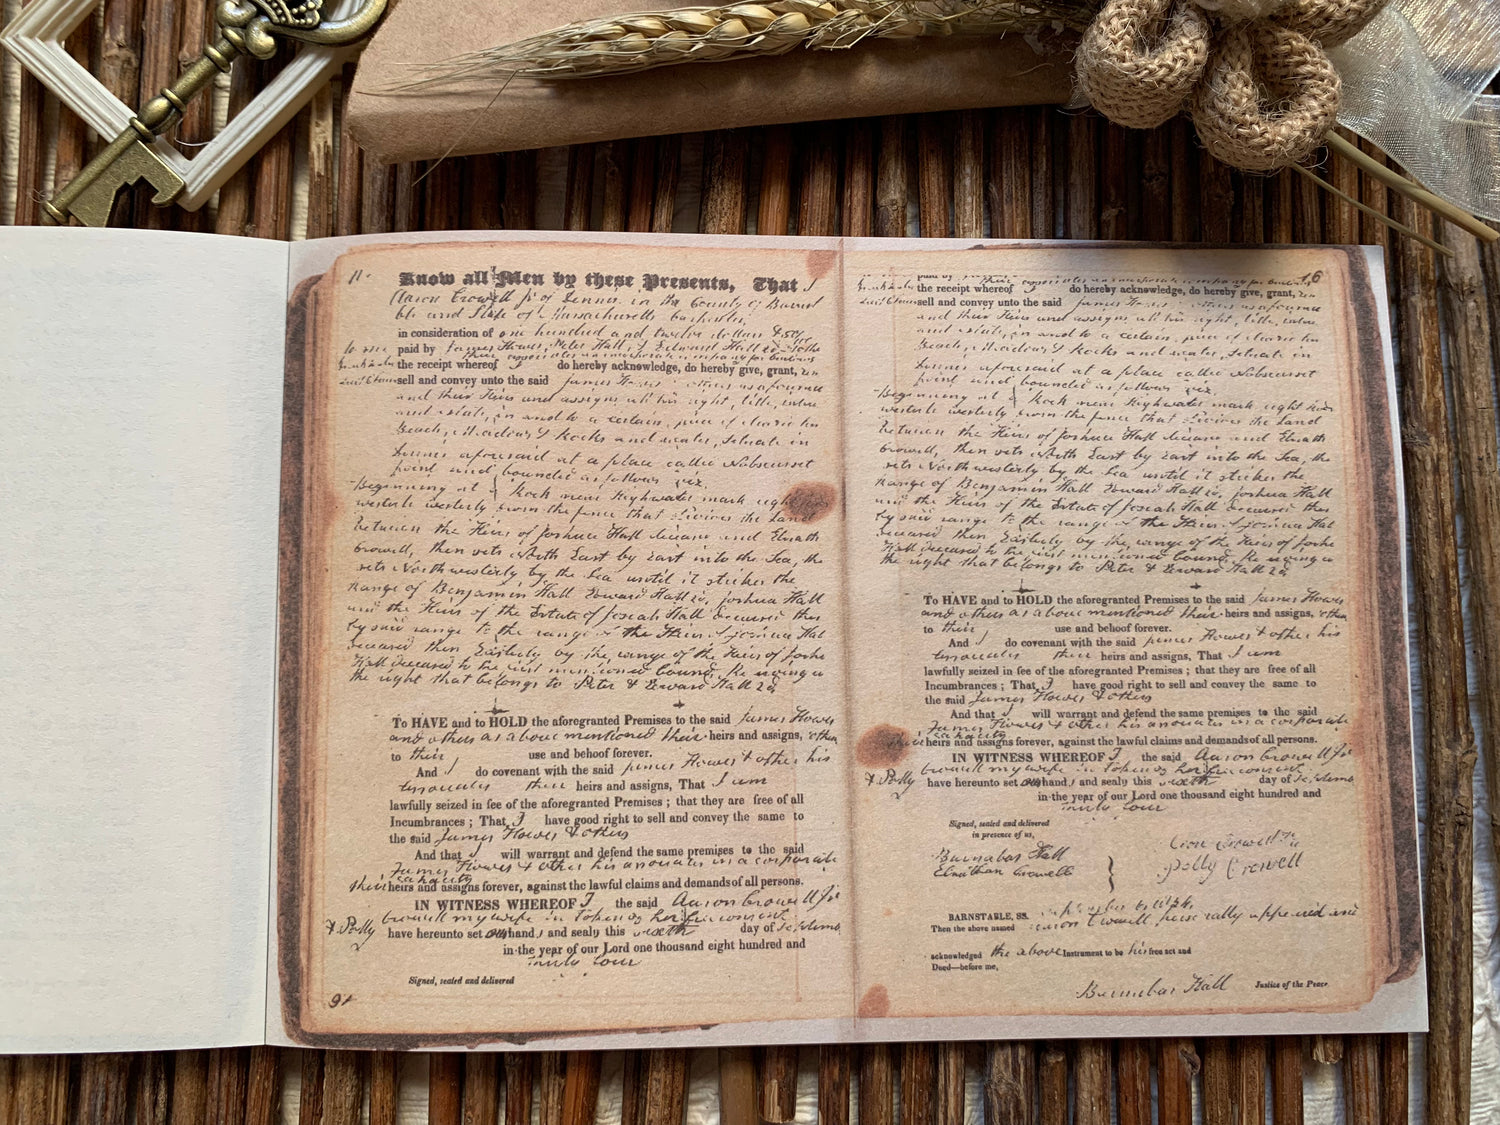 11.
Know all Men by these Presents, That I
Aaron Crowell Jr of Dennis in the County of Barnst
ble and State of Massachusetts
in consideration of one hundred and twelve dollars & 50/
to me paid by James Howes, Peter Hall, & Edward Hall 2d
the receipt whereof I do hereby acknowledge, do hereby give, grant,
sell and convey unto the said James Howes others as aforesaid
and their Heirs and assigns all his right, title, intre
and estate, in and to a certain, piece of
Beach, Meadow & Rocks and water, situate in
Dennis aforesaid at a place called Nobscusset
point and bounded as follows viz.
Beginning at a Rock near Highwater mark eight
westerly from the fence that divides the Land
Between the Heirs of Joshua Hall deceased and Elnath
Crowell, then sets North East by East into the Sea, the
sets Northwesterly by the Sea until it strikes the
Range of Benjamin Hall Edward Hall 2d, Joshua Hall
and the Heirs of the Estate of Josiah Hall deceased then
by said range to the range of the Heirs of Joshua Hal
deceased then Easterly by the range of the Heirs of Josh
Hall deceased to the first mentioned bound, Reserving
the right that belongs to Peter & Edward Hall 2d
To HAVE and to HOLD the aforegranted Premises to the said James Howes
and others as above mentioned their heirs and assigns,
to their use and behoof forever.
And I do covenant with the said James Howes & other his
associates their heirs and assigns, That I am
lawfully seized in fee of the aforegranted Premises ; that they are free of all
Incumbrances ; That I have good right to sell and convey the same to
the said James Howes & others
And that I will warrant and defend the same premises to the said
James Howes & other his associates in a corporate
capacity
their heirs and assigns forever, against the lawful claims and demands of all persons.
IN WITNESS WHEREOF I the said Aaron Crowell Jr
& Polly Crowell my wife in token of her consent
have hereunto set our hands and seals this sixth day of
in the year of our Lord one thousand eight hundred and
four
Signed, sealed and delivered
91
16
paid by
the receipt whereof I do hereby acknowledge, do hereby give, grant,
sell and convey unto the said James Howes others as aforesaid
and their Heirs and assigns all his right, title, intre
and estate, in and to a certain, piece of
Beach, Meadow & Rocks and water, situate in
Dennis aforesaid at a place called Nobscusset
point and bounded as follows viz.
Beginning at a Rock near Highwater mark eight
westerly from the fence that divides the Land
Between the Heirs of Joshua Hall deceased and Elnath
Crowell, then sets North East by East into the Sea, the
sets Northwesterly by the Sea until it strikes the
Range of Benjamin Hall Edward Hall 2d, Joshua Hall
and the Heirs of the Estate of Josiah Hall deceased then
by said range to the range of the Heirs of Joshua Hal
deceased then Easterly by the range of the Heirs of Josh
Hall deceased to the first mentioned bound, Reserving
the right that belongs to Peter & Edward Hall 2d
To HAVE and to HOLD the aforegranted Premises to the said James Howes
and others as above mentioned their heirs and assigns,
to their use and behoof forever.
And I do covenant with the said James Howes & other his
associates their heirs and assigns, That I am
lawfully seized in fee of the aforegranted Premises ; that they are free of all
Incumbrances ; That I have good right to sell and convey the same to
the said James Howes & others
And that I will warrant and defend the same premises to the said
James Howes & other his associates in a corporate
capacity
their heirs and assigns forever, against the lawful claims and demands of all persons.
IN WITNESS WHEREOF I the said Aaron Crowell Jr
& Polly Crowell my wife in token of her consent
have hereunto set our hands and seals this sixth day of
in the year of our Lord one thousand eight hundred and
four
Signed, sealed and delivered
in presence of us,
Barnabas Hall
Elnathan Crowell
Aron Crowell Jr
Polly Crowell
BARNSTABLE, SS.
Then the above named Aaron Crowell, personally appeared and
acknowledged the above Instrument to be his free act and
Deed—before me,
Barnabas Hall Justice of the Peace.